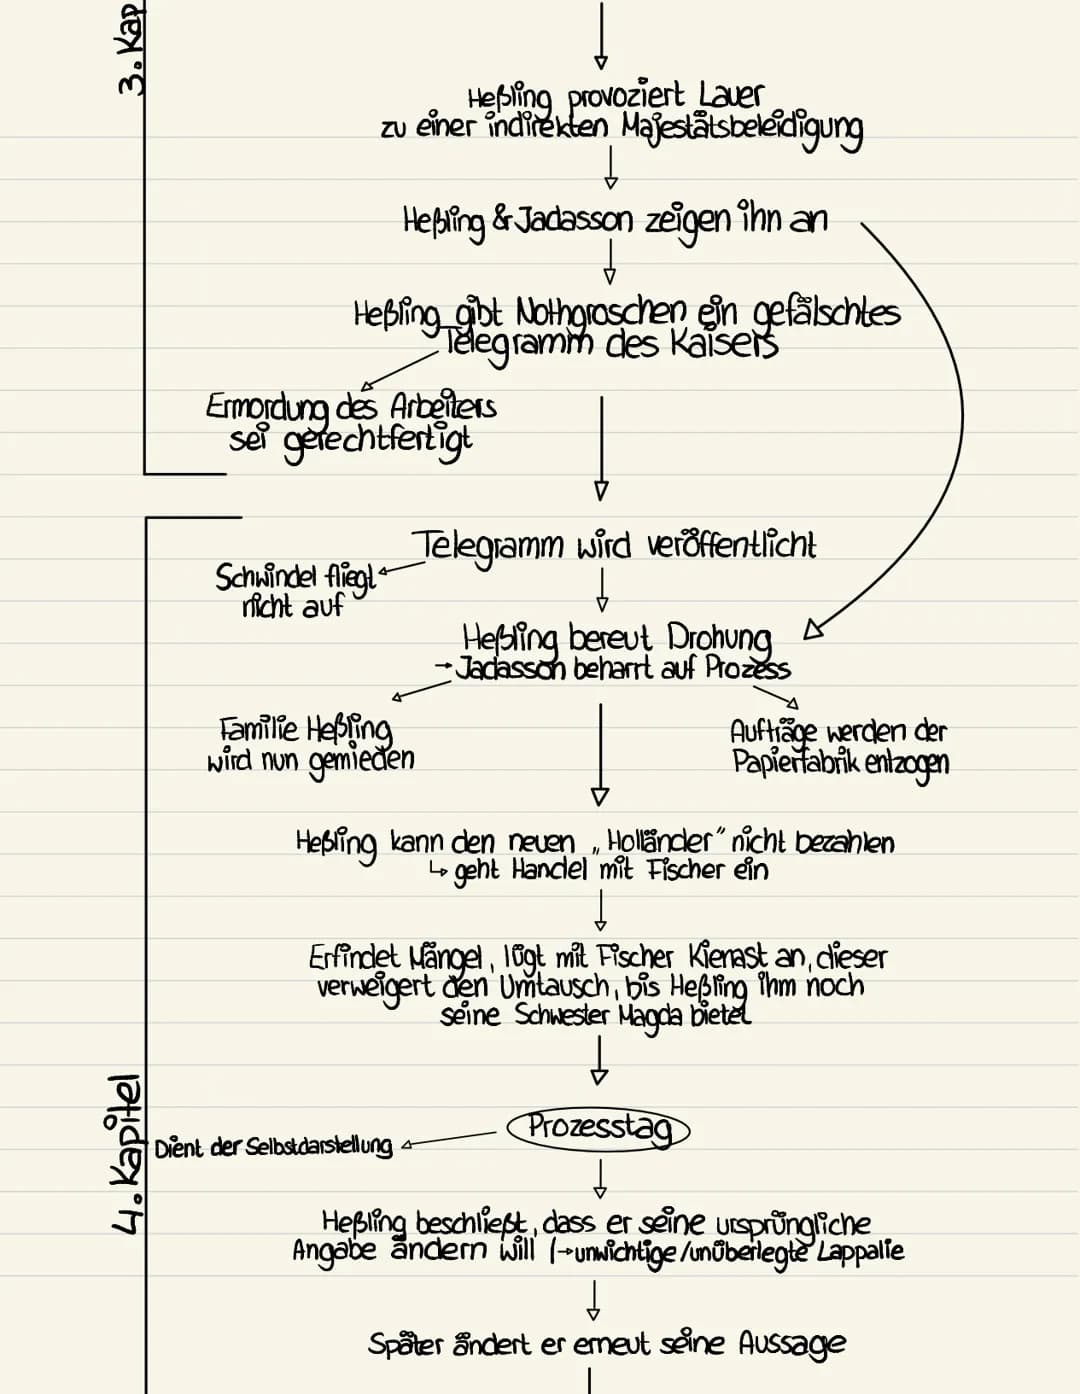 3. Kap
Heßling provoziert Lauer
zu einer indirekten Majestätsbeleidigung
Heßling & Jadasson zeigen ihn an
Heßling gibt Nothgroschen ein gefälschtes
Telegramm des Kaisers
Ermordung des Arbeiters
sei gerechtfertigt
Telegramm wird veröffentlicht
Schwindel fliegt
nicht auf
Heßling bereut Drohung
→ Jadasson beharrt auf Prozess
Familie Heßling
wird nun gemieden
Aufträge werden der
Papierfabrik entzogen
Heßling kann den neuen „Holländer“ nicht bezahlen
↳ geht Handel mit Fischer ein
Erfindet Mängel, lügt mit Fischer Kienast an, dieser
verweigert den Umtausch, bis Heßling ihm noch
seine Schwester Magda bietet
4. Kapitel
Prozesstag
Dient der Selbstdarstellung
Heßling beschließt, dass er seine ursprüngliche
Angabe ändern will (→ unwichtige/unüberlegte Lappalie
Später ändert er erneut seine Aussage